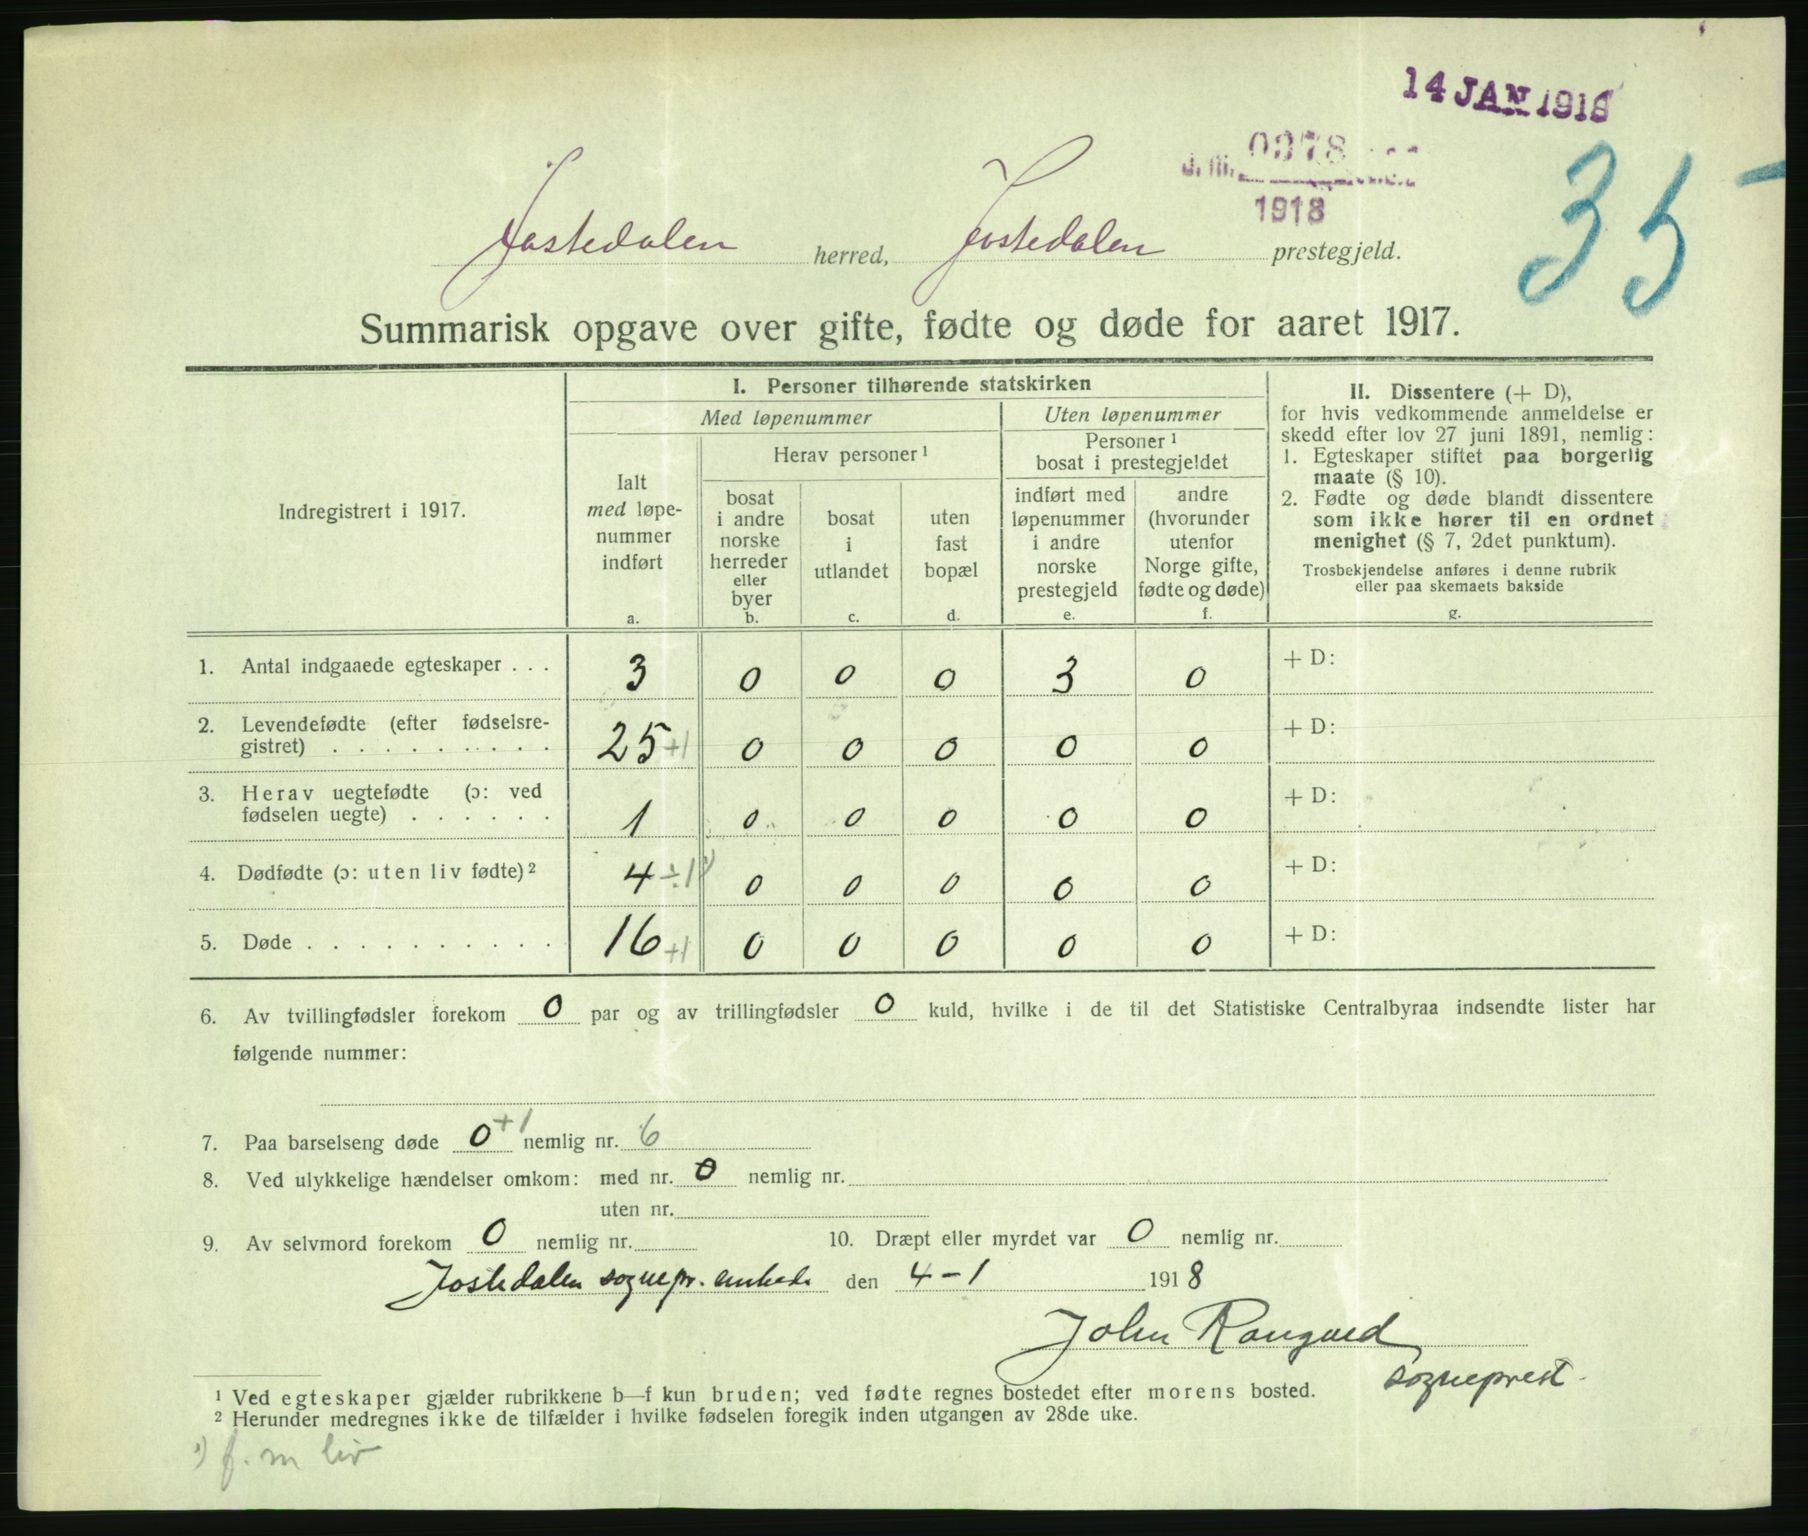 14 JAN 1918
J. nr. 0378
1918
35
Jostedalen herred, Jostedalen prestegjeld.
Summarisk opgave over gifte, fødte og døde for aaret 1917.
Indregistrert i 1917.
I. Personer tilhørende statskirken
Med løpenummer
Uten løpenummer
Ialt
med løpe-
nummer
indført
a.
Herav personer¹
bosat
i andre
norske
herreder
eller
byer
b.
bosat
i
utlandet
c.
uten
fast
bopæl
d.
Personer¹
bosat i prestegjeldet
indført med
løpenummer
i andre
norske
prestegjeld
e.
andre
(hvorunder
utenfor
Norge gifte,
fødte og døde)
f.
II. Dissentere (+ D),
for hvis vedkommende anmeldelse er
skedd efter lov 27 juni 1891, nemlig:
1. Egteskaper stiftet paa borgerlig
maate (§ 10).
2. Fødte og døde blandt dissentere
som ikke hører til en ordnet
menighet (§ 7, 2det punktum).
Trosbekjendelse anføres i denne rubrik
eller paa skemaets bakside
g.
1. Antal indgaaede egteskaper . . . 3 0 0 0 3 0 + D:
2. Levendefødte (efter fødselsre-
gistret) . . . . . . . . . . 25 +1 0 0 0 0 0 + D:
3. Herav uegtefødte (ɔ: ved
fødselen uegte) . . . . . . 1 0 0 0 0 0 + D:
4. Dødfødte (ɔ: uten liv fødte)² 4 ÷1 ¹) 0 0 0 0 0 + D:
5. Døde . . . . . . . . . . 16 +1 0 0 0 0 0 + D:
6. Av tvillingfødsler forekom 0 par og av trillingfødsler 0 kuld, hvilke i de til det Statistiske Centralbyraa indsendte lister har
følgende nummer:
7. Paa barselseng døde 0 +1 nemlig nr. 6
8. Ved ulykkelige hændelser omkom: med nr. 0 nemlig nr.
uten nr.
9. Av selvmord forekom 0 nemlig nr. 10. Dræpt eller myrdet var 0 nemlig nr.
Jostedalen sognepr. embede den 4-1 1918
John Rongved
sogneprest.
¹ Ved egteskaper gjælder rubrikkene b—f kun bruden; ved fødte regnes bostedet efter morens bosted.
² Herunder medregnes ikke de tilfælder i hvilke fødselen foregik inden utgangen av 28de uke.
¹) f. m liv